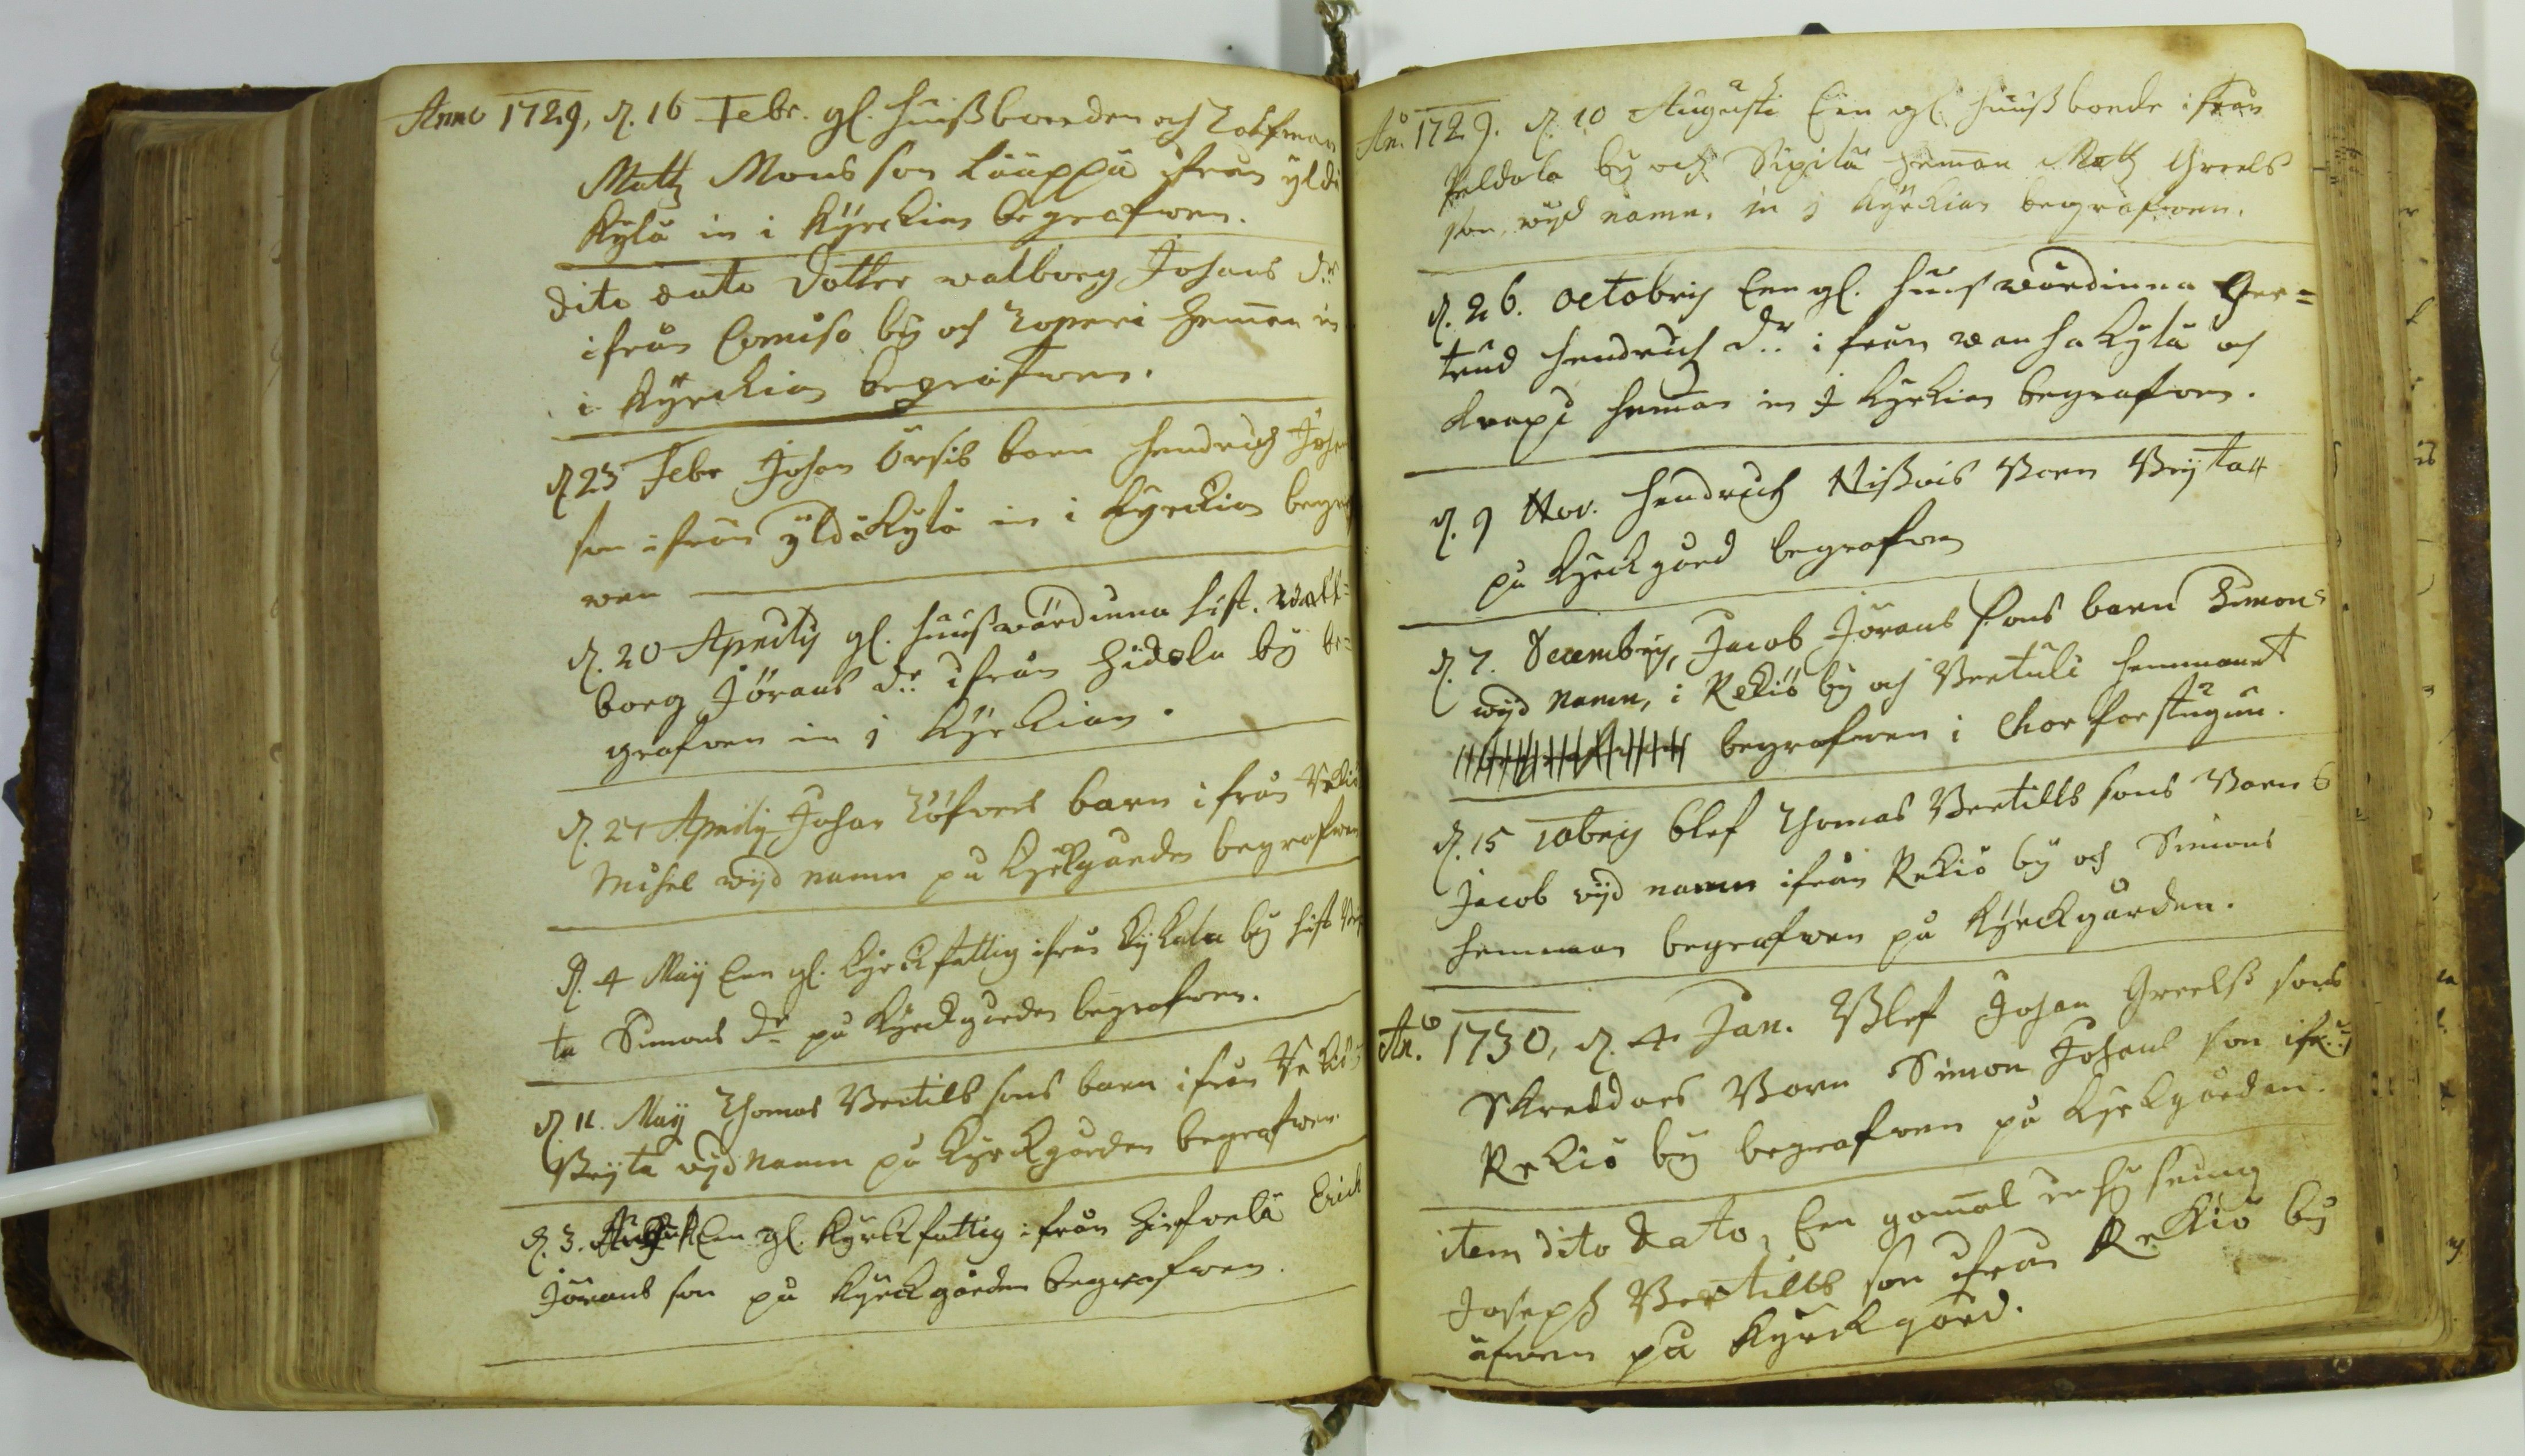 Anno 1729, d. 16 Febr. gl. huußbonden och Tolfman
Matz Mons son Lauppa ifrån yldä
Kylä in i Kyrckian begrafwen.
dito dato Dotter walborg Johans dr
ifrån Comiso by och Toperi heman in
i Kyrckian begrafwen.
d 23 Febr Johan Örsis barn Hendrich Johan
son ifrån yldäkylä in i Kyrckian begraf
wen
d. 20 Aprilis gl. huußwärdinna hust. wall=
borg Jörans dr ifrån Hidola by be=
grafven in i Kyrckian.
d. 27 Aprilis Johan Löfvers barn ifrån
Mihel wijd namn på Kyrkgården begrafwen
d. 4 Maij Een gl. Kyrckfattig ifrån Kykala by hust
ta Simons dr på Kyrckgården begrafwen.
d. 11. Maij Thomas Bertills sons barn ifrån
Brijta wijd Namn på Kyrckgården begrafwen
d. 3. Een gl. Kyrckfattig ifrån Hirfvelä Erich
Jörans son på Kyrckgården begrafwen.
Ano 1729. d. 10 Augusti Een gl. huußbonde ifrån
Peldola by och Sipilä heman Matz Greels
son, wijd namn. in i Kyrckian begrafwen.
d. 26. octobris Een gl. huuswärdinna Ger=
trud Hendrich dr ifrån wanhakylä och
Krapi heman in I Kyrkian begrafwen.
d. 9 Nov. Hendrich Nißois Barn Brijta
på Kyrckgård begrafwen
d. 7. Decembris, Jacob Jörans Sons barn Simon
wijd Namn, i Rekiö by och Bertuli hemmanet
begrafwen i Chor forstugun.
d. 15 10bris blef Thomas Bertills sons Barn
Jacob wijd namn ifrån Rekiö by och Simons
hemman begrafwen på Kyrckgården.
An.o 1730, d. 4 Jan. Blef Johan Greelß sons
Skreddars Barn Simon Johans son ifr.
Rekiö by begrafwen på Kyrkgården.
item dito dato, Een gamal inhysning
Joseph Bertills son ifrån Rekiö by
äfwen på Kyrckgård.